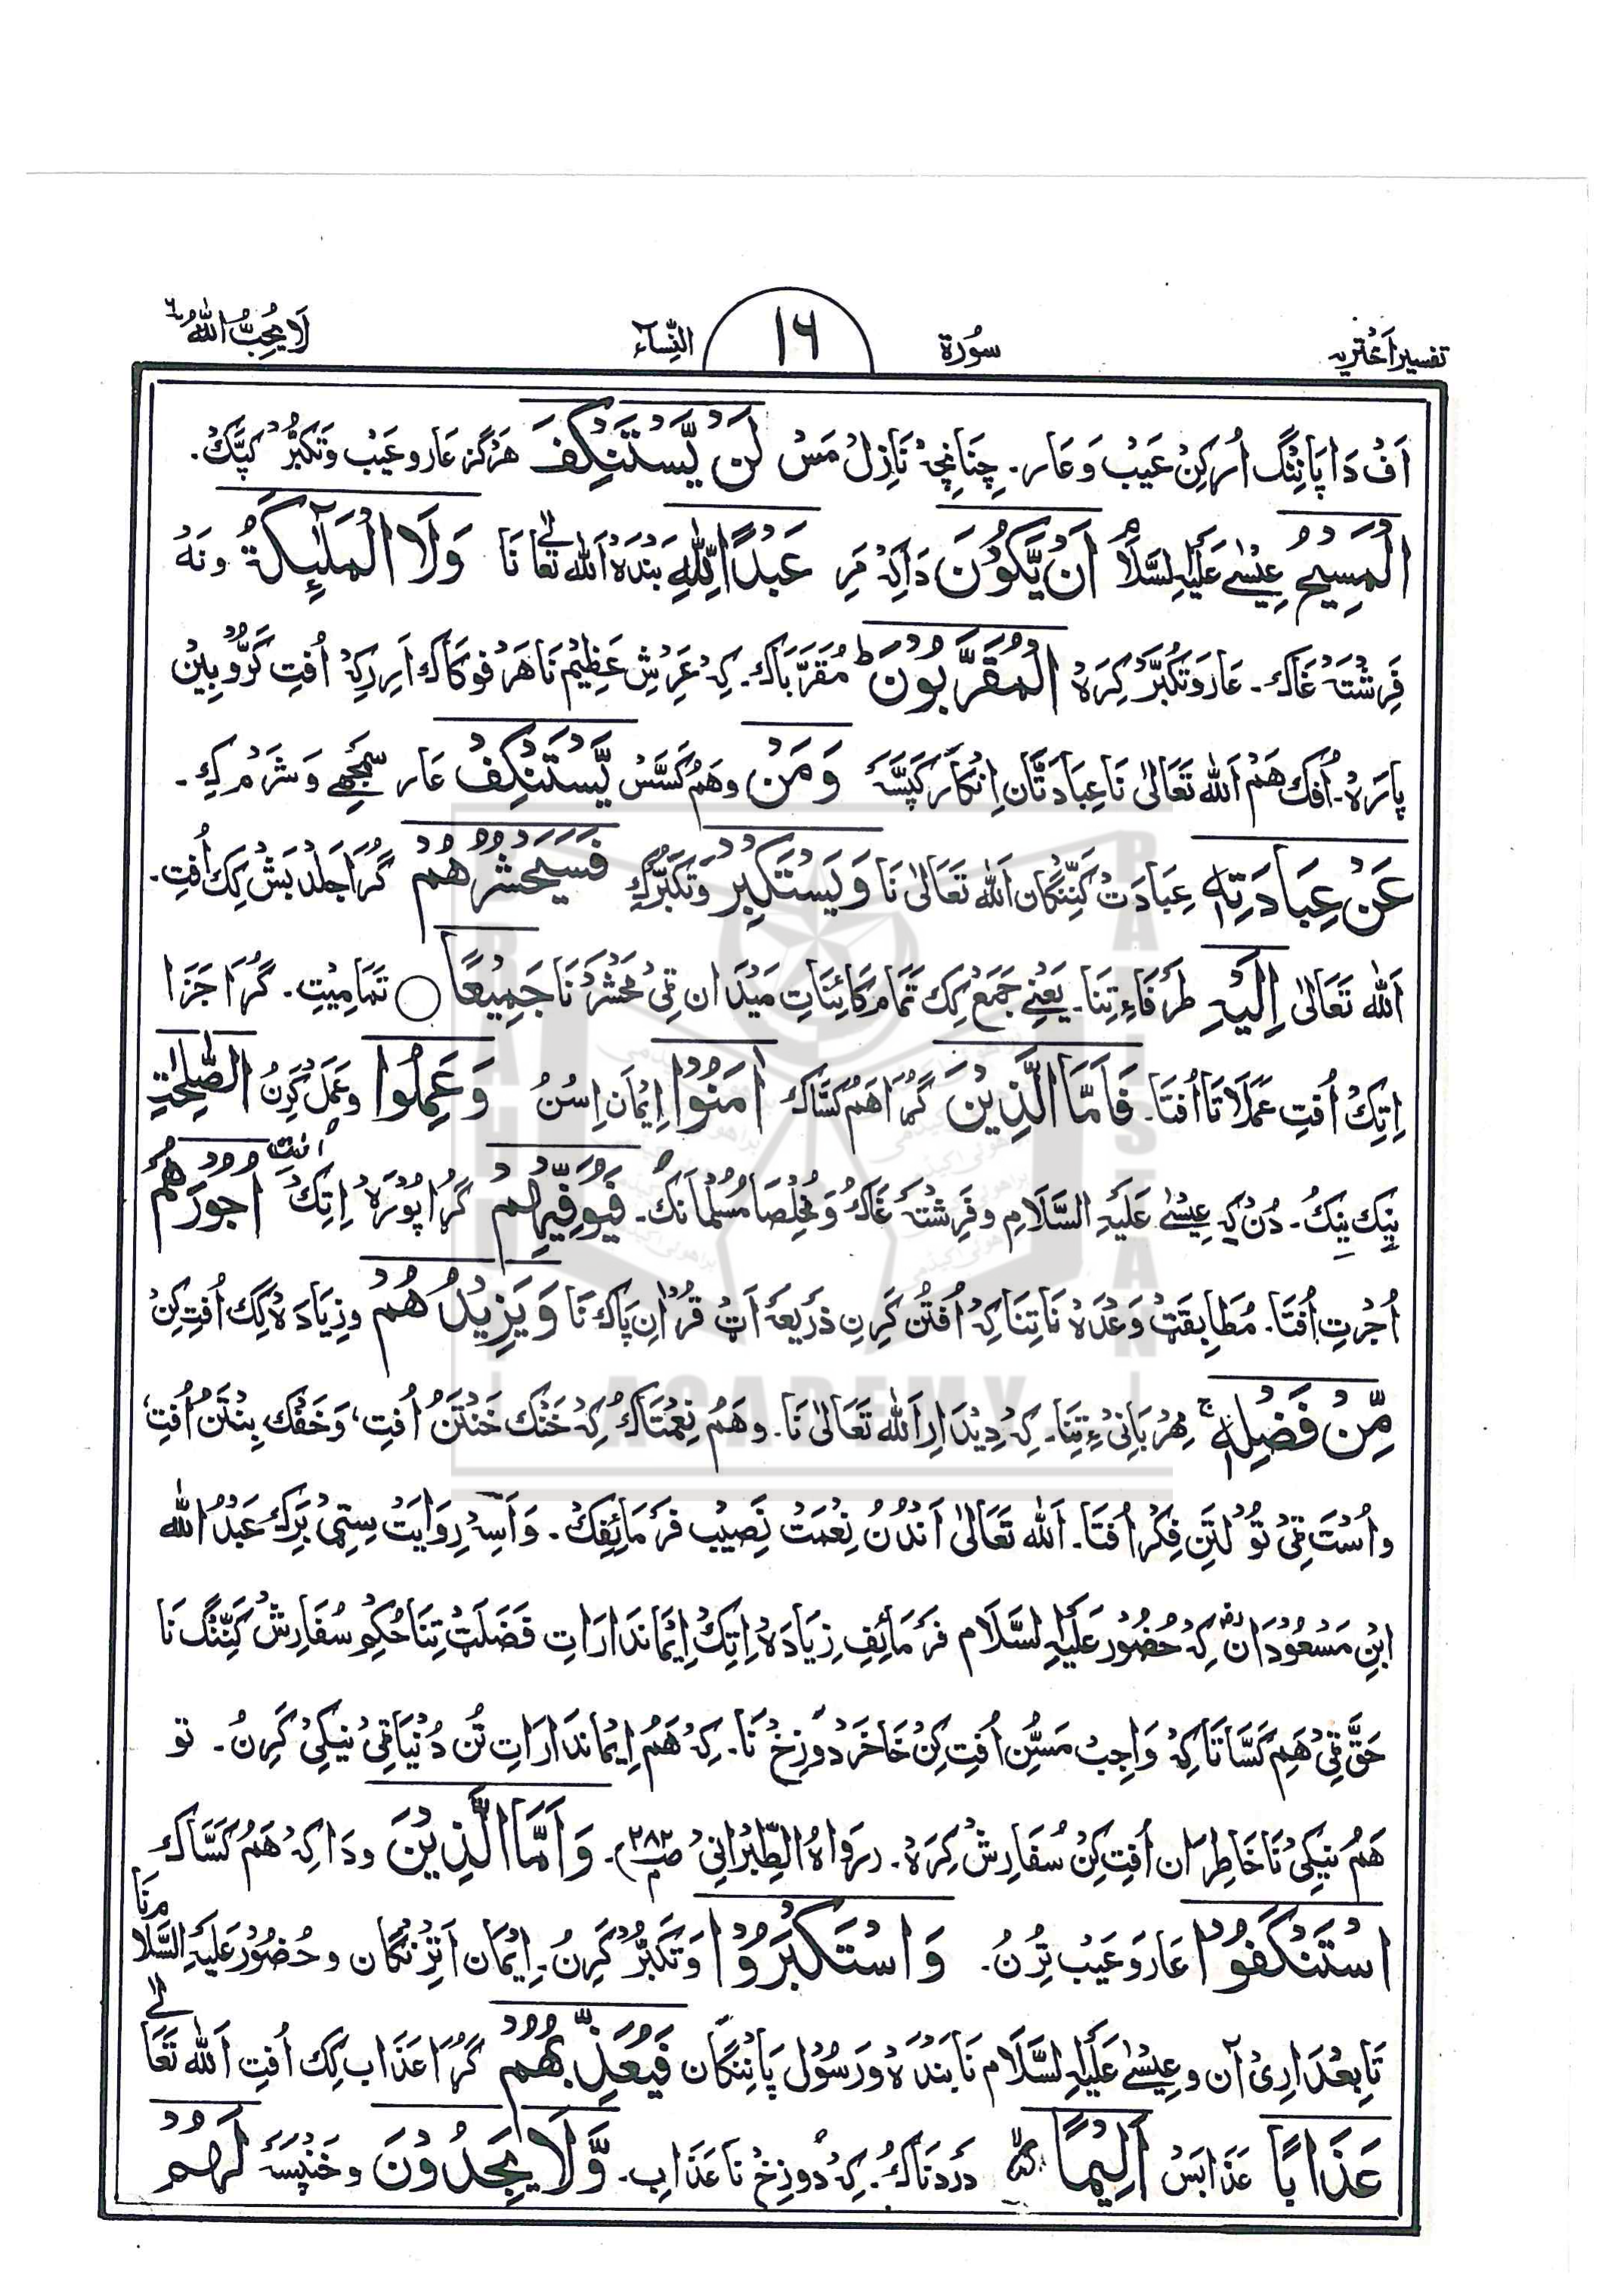 تفسیر اَختریہ سُورۃ ١٦ النِّسَآء لَا یُحِبُّ اللّٰهُ ٦
اَفْ دَا پَانِنْگ اُر کِنْ عَیْب وَ عَار۔ چِنَانچِہْ نَازِلْ مَسْ لَنْ یَّسْتَنْکِفَ هَرْگز عَار و عَیْب وَتَکَبُّرْ کَپَّکْ۔
الْمَسِیْحُ عِیْسٰے عَلَیْہِ السَّلَامُ اَنْ یَّکُوْنَ دَاکِہْ مَرِ عَبْدًا لِّلّٰهِ بَنْدَہْ اَللّٰه تَعَالٰے نَا وَلَا الْمَلٰٓئِکَةُ و نَهْ
فَرِشْتَہْ غَاک۔ عَار وَتَکَبُّرْ کِرَہْ الْمُقَرَّبُوْنَ ط مُقَرَّبَاک۔ کِہْ عَرْشِ عَظِیْم نَا هَرْفوکَاک اَرِ رکِہْ اُفْتِ کَرُّوْبِیْنْ
پَارَہْ۔ اُفَک هَمْ اَللّٰه تَعَالٰی نَا عِبَادَتَّان اِنْکَار کَپَّسَہْ وَمَنْ وهَمْ کَسَّسْ یَّسْتَنْکِفْ عَار سَمْجھے وَ شَرْم کِے۔
عَنْ عِبَادَتِهٖ عِبَادَتْ کَنِّنْگان اَللّٰه تَعَالٰی نَا وَیَسْتَکْبِرْ وَتَکَبُّرْکِے فَسَیَحْشُرُهُمْ گُرَا جَلْد بَشْ کِک اُفْتِ۔
اَللّٰه تَعَالٰی اِلَیْهِ طَرَفَاءِ تِنَا۔ یَعْنِے جَمَع کِک تَمَام کَائِنَاتِ مَیْدَان قِیْ مَحْشَرْ نَا جَمِیْعًا ○ تَمَامِیْتِ۔ گُرَا جَزَا
اِتِکْ اُفْتِ عَمَلَاتَا اُفْتَا۔ فَاَمَّا الَّذِیْنَ گُرَا هَمْ کَسَّاک اٰمَنُوْا اِیْمَان اِسُنُ وَعَمِلُوا وعَمَل کَرِنُ الصّٰلِحٰتِ
نِیک نِیکُ۔ دُنْ کِہ عِیْسٰے عَلَیْہِ السَّلَامِ و فَرِشْتَہْ غَاکْ وَ مُخْلِصَا مُسْلمَانَک۔ فَیُوَفِّیْهِمْ گُرَا پُوْرَہْ اِتِکْ اُفْتِ اُجُوْرَهُمْ
اُجْرَتِ اُفْتَا۔ مُطَابِقَتْ وَعْدَہْ نَا تِنَا کِہْ اُفْتُن کَرِنِ ذَرِیْعَہْ اَٹْ قُرْاٰنِ پَاک نَا وَیَزِیْدُهُمْ وزِیَادَہْ کِک اُفْتِ کِنْ
مِّنْ فَضْلِهٖ ج مِهْرْبَانِیْ ءِ تِنَا۔ کِہْ دِیْدَارِ اَللّٰه تَعَالٰی نَا۔ وهَمْ نِعْمَتَاکْ کِہْ خَنْک خَنْتَنُ اُفْتِ، وَخَفْک بِنْتَنُ اُفْتِ،
و اُسْتَ قِیْ تُوْ لَتَنِ فِکْر اُفْتَا۔ اَللّٰه تَعَالٰی اَنْدُنُ نِعْمَتْ نَصِیْب فَرْمَائِفِکْ۔ وَاَسِہْ رِوَایَتْ سِتِیْ بَرَک عَبْدُ اللّٰه
ابْنِ مَسْعُوْدَان رض کِہْ حُضُوْر عَلَیْہِ السَّلَام فَرْمَائِفِ زِیَادَہْ اِتِکْ اِیْمَانْدَارَاتِ فَضْلَتْ تِنَا حُکْمِ سُفَارِشْ کَنِّنْگ نَا
حَقِّ قِیْ هَمِ کَسَّاتَا کِہْ وَاجِبْ مَسُّنِ اُفْتِ کِنْ خَاخَر دَوْزِخْ نَا۔ کِہْ هَمْ اِیْمَانْدَارَاتِ تُن دُنْیَا قِیْ نِیْکِیْ کَرِنُ۔ تو
هَمْ نِیْکِیْ نَا خَاطِرَان اُفْتِ کِنْ سُفَارِشْ کِرَہْ۔ (رَوَاہُ الطِّبْرَانِیْ ص ٢٨٢ م)۔ وَاَمَّا الَّذِیْنَ ودَا کِہْ هَمْ کَسَّاک
اسْتَنْکَفُوْا عَار وَعَیْب تِرُنُ۔ وَاسْتَکْبَرُوْا وَتَکَبُّرْ کَرِنُ۔ اِیْمَان اَتِنْنِگان و حُضُوْر عَلَیْہِ السَّلَام نَا
تَابِعْدَارِیْ آن و عِیْسٰے عَلَیْہِ السَّلَام نَا بَنْدَہْ وَرَسُوْل پَانِنْگان فَیُعَذِّبُهُمْ گُرَا عَذَاب کِک اُفْتِ اَللّٰه تَعَالٰے
عَذَابًا عَذَابَسْ اَلِیْمًا دَرْدنَاکْ۔ کِہْ دُوزِخْ نَا عَذَابِ۔ وَّلَا یَجِدُوْنَ و خَنِپَسَہْ لَهُمْ
BRAHUI ACADEMY PAKISTAN